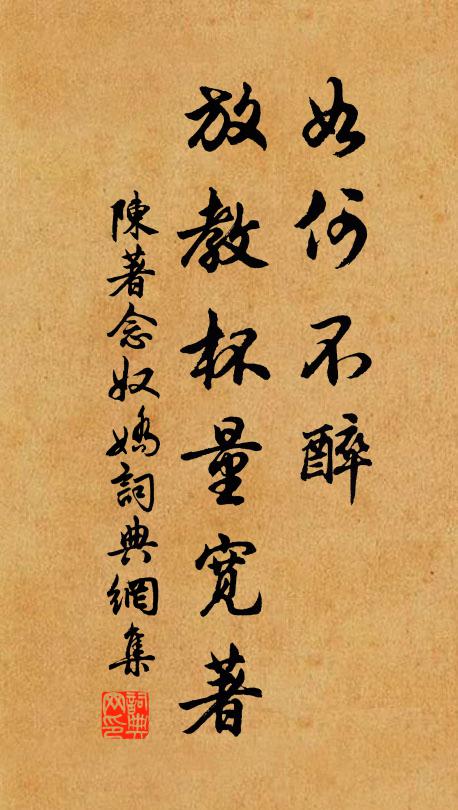 如何不醉
放教杯量寬著
陳著念奴嬌詞典網集
詞典
网印